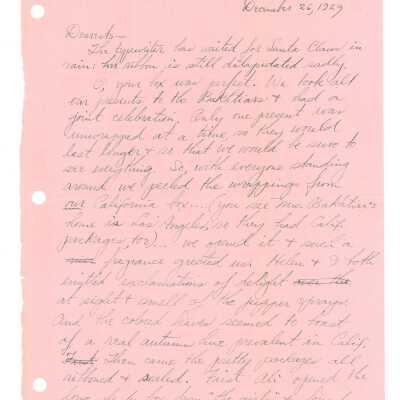 December 26, 1929
Dearests—
The typewriter has waited for Santa Claus in
vain: her ribbon is still dilapidated sadly.
O, your box was perfect. We took all
our presents to the Bakatians & had a
joint celebration. Only one present was
unwrapped at a time, so they would
last longer & so that we would be sure to
see everything. So, with everyone standing
around we peeled the wrappings from
our California box... (you see Mrs. Bakatian's
home is Los Angeles, so they had Calif.
packages, too)... we opened it & such a
fragrance greeted us. Helen & I both
exclamations of delight
at sight & smell of the pepper sprays.
And the colored leaves seemed to boast
of a real autumn here prevalent in Calif.
Then came the pretty packages all
ribboned & sealed. First Ali opened the